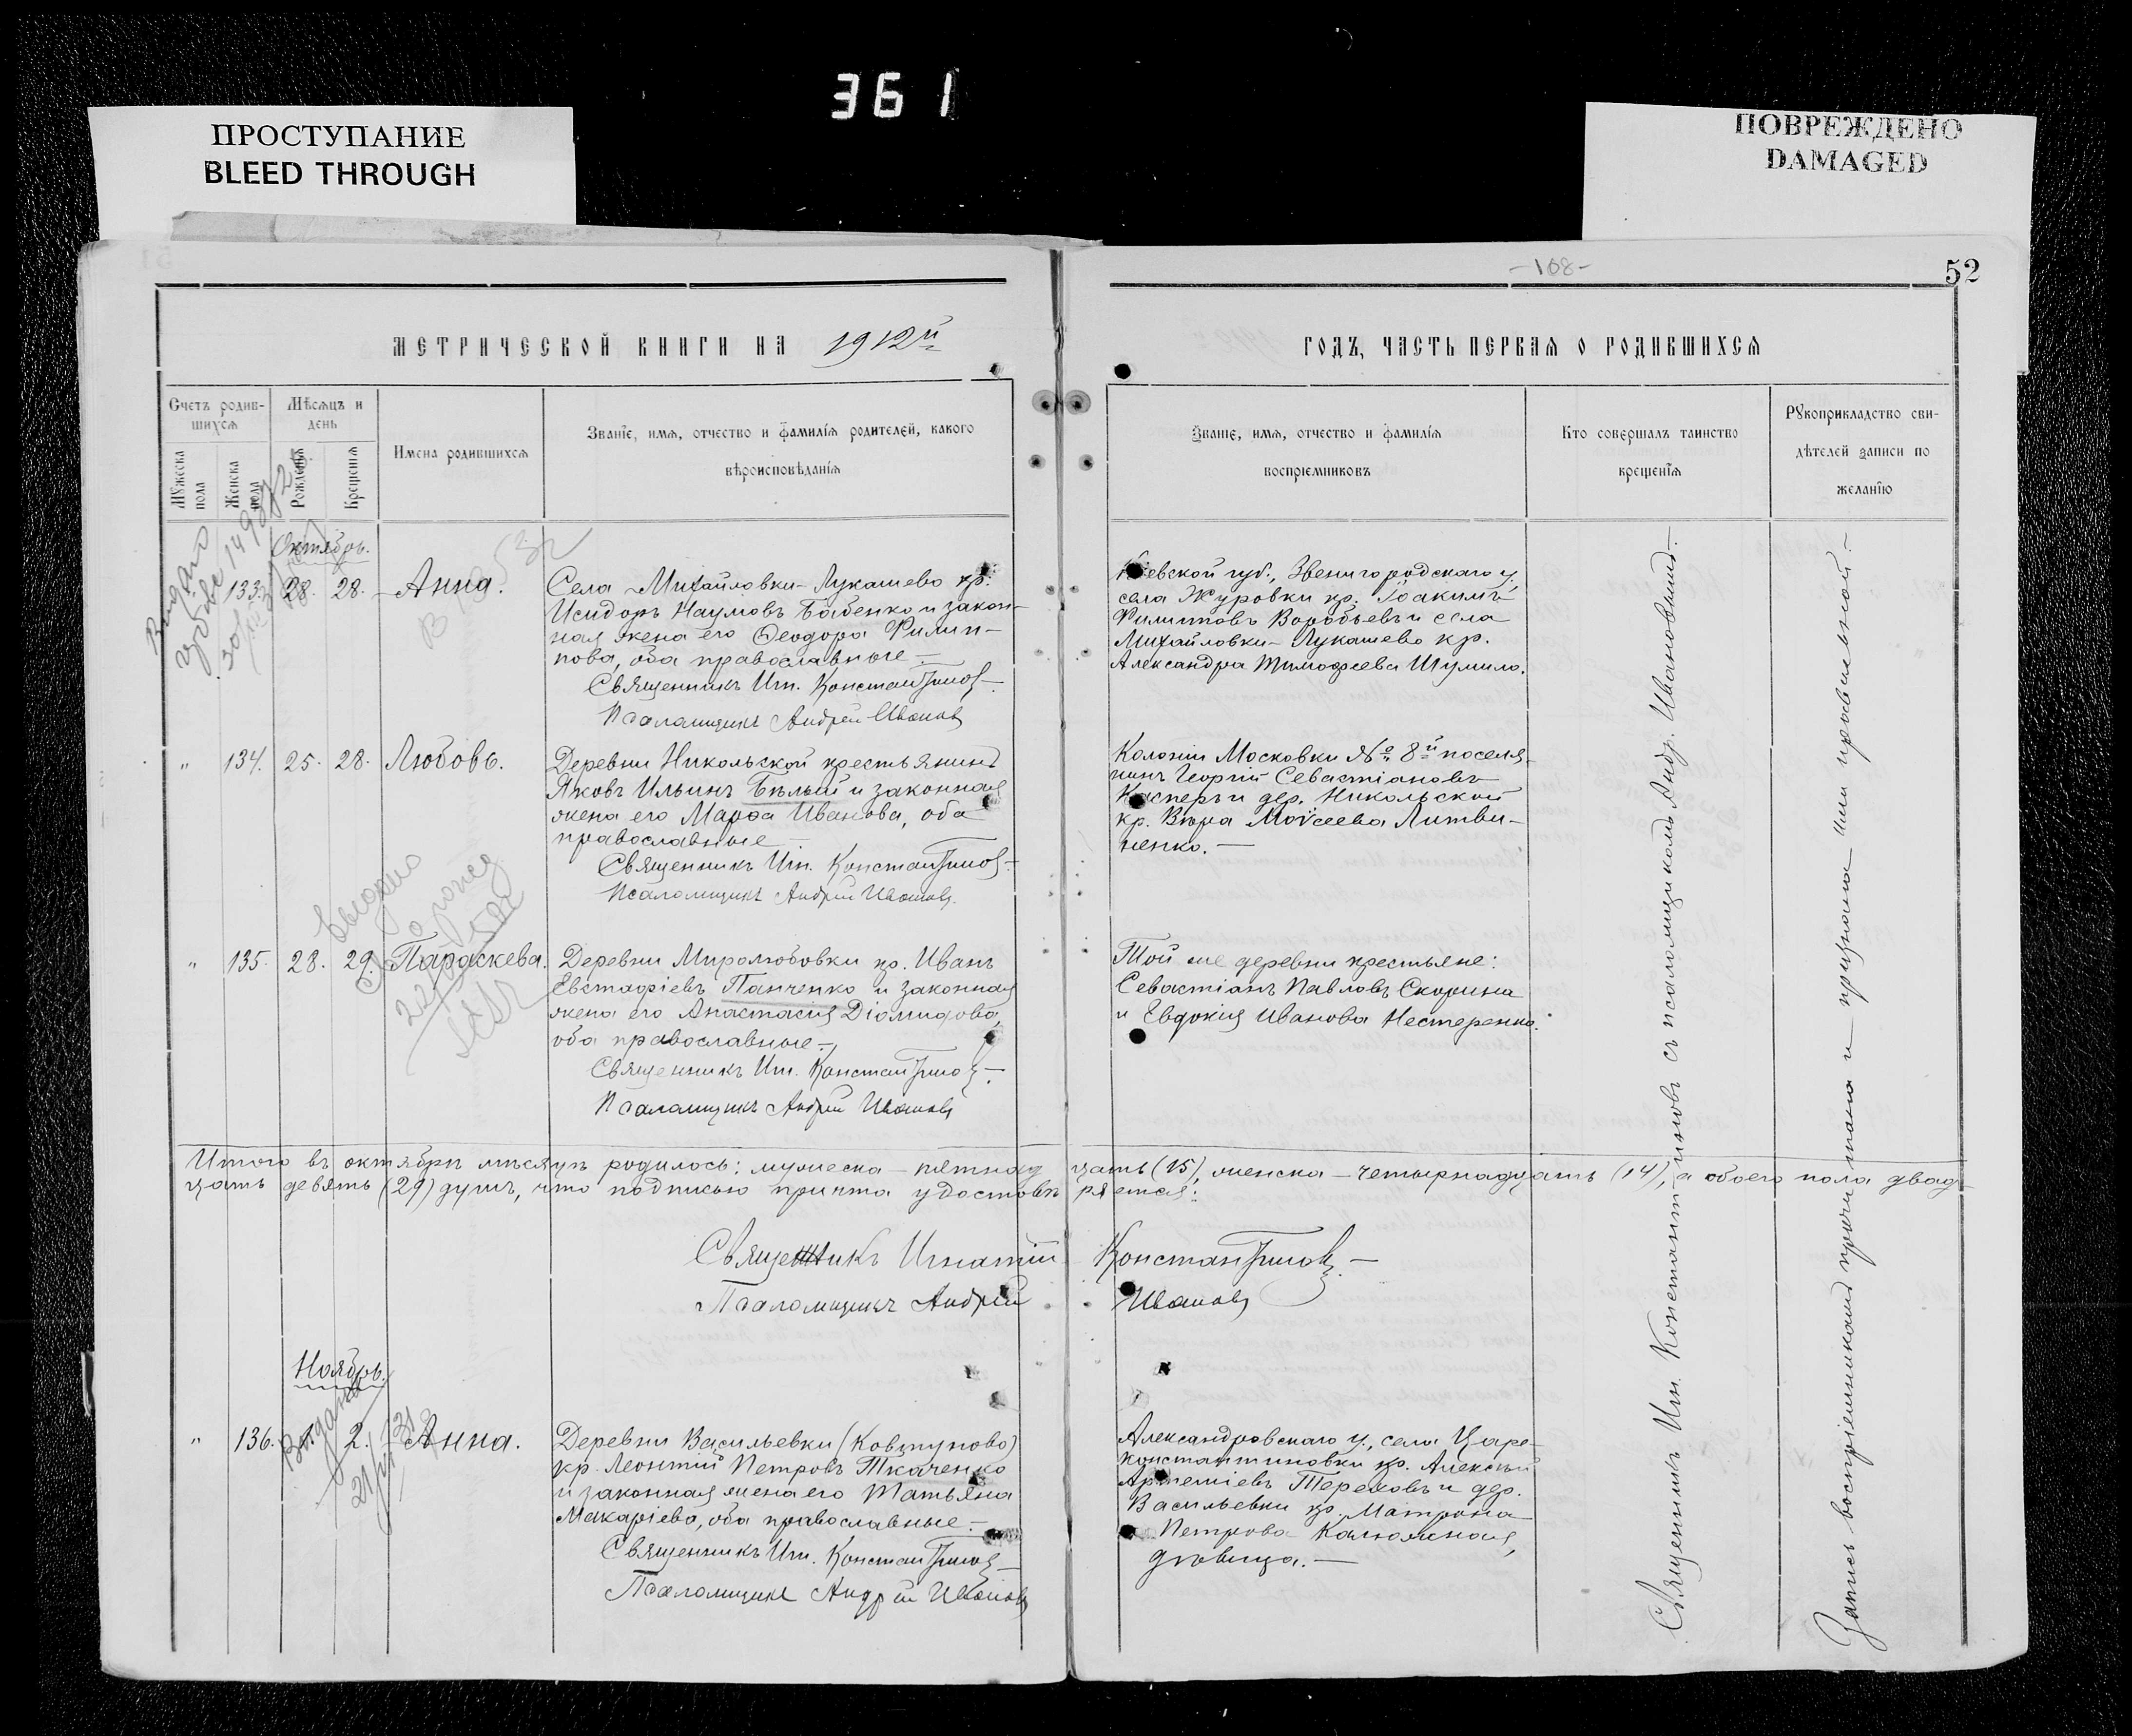 361
ПРОСТУПАНИЕ
BLEED THROUGH
ПОВРЕЖДЕНО
DAMAGED
-108-
52
МЕТРИЧЕСКОЙ КНИГИ НА 1912й
ГОДЪ, ЧАСТЬ ПЕРВАЯ О РОДИВШИХСЯ
Счетъ родив-
шихся
Мужеска пола
Женска пола
Мѣсяцъ и
день
Рожденія
Крещенія
Имена родившихся
Званіе, имя, отчество и фамилія родителей, какого
вѣроисповѣданія
Званіе, имя, отчество и фамилія
воспріемниковъ
Кто совершалъ таинство
крещенія
Рукоприкладство сви-
дѣтелей записи по
желанію
Октябрь.
133. 28. 28. Анна.
Села Михайловки-Лукашево кр.
Исидоръ Наумовъ Бабенко и закон-
ная жена его Ѳеодора Филип-
пова, оба православные.
Священникъ Иг. Константиновъ
Псаломщикъ Андрей Ивановъ
Кіевской губ., Звенигородскаго у.,
села Журовки кр. Іоакимъ
Филипповъ Воробьевъ и села
Михайловки-Лукашево кр.
Александра Тимофеева Шумило.
" 134. 25. 28. Любовь.
Деревни Никольской крестьянинъ
Яковъ Ильинъ Бѣлый и законная
жена его Марѳа Иванова, оба
православные
Священникъ Иг. Константиновъ
Псаломщикъ Андрей Ивановъ.
Колоніи Московки № 8й поселя-
нинъ Георгій Севастіановъ
Касперъ и дер. Никольской
кр. Вѣра Моѵсеева Литви-
ненко.
" 135. 28. 29. Параскева.
Деревни Миролюбовки кр. Иванъ
Евстафіевъ Панченко и законная
жена его Анастасія Діомидова,
оба православные
Священникъ Иг. Константиновъ
Псаломщикъ Андрей Ивановъ
Той же деревни крестьяне:
Севастіанъ Павловъ Скорина
и Евдокія Иванова Нестеренко.
Итого въ октябрѣ мѣсяцѣ родилось: мужеска - пятнадцать (15), женска - четырнадцать (14), а обоего пола двад-
цать девять (29) душъ, что подписью причта удостовѣряется:
Священникъ Игнатій Константиновъ
Псаломщикъ Андрей Ивановъ
Ноябрь.
" 136. 2. Анна.
Деревни Васильевки (Ковтуново)
кр. Леонтій Петровъ Ткаченко
и законная жена его Татьяна
Макаріева, оба православные
Священникъ Иг. Константиновъ
Псаломщикъ Андрей Ивановъ
Александровскаго у., села Царе-
константиновки кр. Алексѣй
Артеміевъ Тереховъ и дер.
Васильевки кр. Матрона
Петрова Калюжная,
дѣвица.
Священникъ Иг. Константиновъ съ псаломщикомъ Андр. Ивановымъ
Запись воспріемникамъ прочитана и признана ими правильной